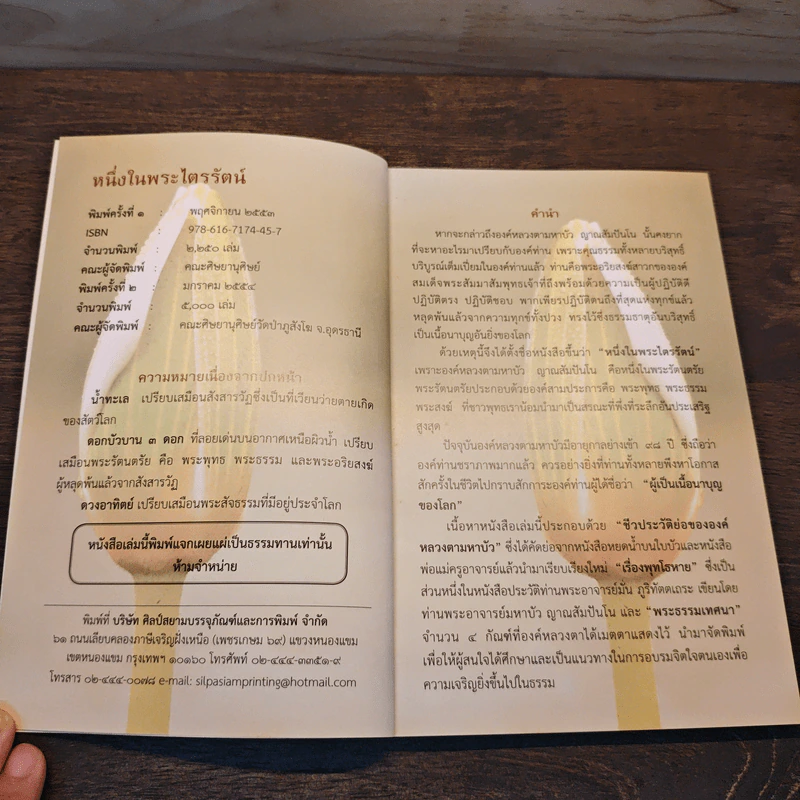 หนึ่งในพระไตรรัตน์
พิมพ์ครั้งที่ ๑ : พฤศจิกายน ๒๕๕๓
ISBN : 978-616-7174-45-7
จำนวนพิมพ์ : ๒,๒๕๐ เล่ม
คณะผู้จัดพิมพ์ : คณะศิษยานุศิษย์
พิมพ์ครั้งที่ ๒ : มกราคม ๒๕๕๔
จำนวนพิมพ์ : ๕,๐๐๐ เล่ม
คณะผู้จัดพิมพ์ : คณะศิษยานุศิษย์วัดป่าภูสังโฆ จ.อุดรธานี
ความหมายเนื่องจากปกหน้า
น้ำทะเล เปรียบเสมือนสังสารวัฏซึ่งเป็นที่เวียนว่ายตายเกิด
ของสัตว์โลก
ดอกบัวบาน ๓ ดอก ที่ลอยเด่นบนอากาศเหนือผิวน้ำ เปรียบ
เสมือนพระรัตนตรัย คือ พระพุทธ พระธรรม และพระอริยสงฆ์
ผู้หลุดพ้นแล้วจากสังสารวัฏ
ดวงอาทิตย์ เปรียบเสมือนพระสัจธรรมที่มีอยู่ประจำโลก
หนังสือเล่มนี้พิมพ์แจกเผยแผ่เป็นธรรมทานเท่านั้น
ห้ามจำหน่าย
พิมพ์ที่ บริษัท ศิลป์สยามบรรจุภัณฑ์และการพิมพ์ จำกัด
๖๑ ถนนเลียบคลองภาษีเจริญฝั่งเหนือ (เพชรเกษม ๖๙) แขวงหนองแขม
เขตหนองแขม กรุงเทพฯ ๑๐๑๖๐ โทรศัพท์ ๐๒-๔๔๔-๓๓๕๑-๙
โทรสาร ๐๒-๔๔๔-๐๐๗๘ e-mail: silpasiamprinting@hotmail.com
คำนำ
หากจะกล่าวถึงองค์หลวงตามหาบัว ญาณสัมปันโน นั้นคงยาก
ที่จะหาอะไรมาเปรียบกับองค์ท่าน เพราะคุณธรรมทั้งหลายบริสุทธิ์
บริบูรณ์เต็มเปี่ยมในองค์ท่านแล้ว ท่านคือพระอริยสงฆ์สาวกขององค์
สมเด็จพระสัมมาสัมพุทธเจ้าที่ถึงพร้อมด้วยความเป็นผู้ปฏิบัติดี
ปฏิบัติตรง ปฏิบัติชอบ พากเพียรปฏิบัติตนถึงที่สุดแห่งทุกข์แล้ว
หลุดพ้นแล้วจากความทุกข์ทั้งปวง ทรงไว้ซึ่งธรรมธาตุอันบริสุทธิ์
เป็นเนื้อนาบุญอันยิ่งของโลก
ด้วยเหตุนี้จึงได้ตั้งชื่อหนังสือขึ้นว่า "หนึ่งในพระไตรรัตน์"
เพราะองค์หลวงตามหาบัว ญาณสัมปันโน คือหนึ่งในพระรัตนตรัย
พระรัตนตรัยประกอบด้วยองค์สามประการคือ พระพุทธ พระธรรม
พระสงฆ์ ที่ชาวพุทธเราน้อมนำมาเป็นสรณะที่พึ่งที่ระลึกอันประเสริฐ
สูงสุด
ปัจจุบันองค์หลวงตามหาบัวมีอายุกาลย่างเข้า ๙๘ ปี ซึ่งถือว่า
องค์ท่านชราภาพมากแล้ว ควรอย่างยิ่งที่ท่านทั้งหลายพึงหาโอกาส
สักครั้งในชีวิตไปกราบสักการะองค์ท่านผู้ได้ชื่อว่า "ผู้เป็นเนื้อนาบุญ
ของโลก"
เนื้อหาหนังสือเล่มนี้ประกอบด้วย "ชีวประวัติย่อขององค์
หลวงตามหาบัว" ซึ่งได้คัดย่อจากหนังสือหยดน้ำบนใบบัวและหนังสือ
พ่อแม่ครูอาจารย์แล้วนำมาเรียบเรียงใหม่ "เรื่องพุทโธหาย" ซึ่งเป็น
ส่วนหนึ่งในหนังสือประวัติท่านพระอาจารย์มั่น ภูริทัตตเถระ เขียนโดย
ท่านพระอาจารย์มหาบัว ญาณสัมปันโน และ "พระธรรมเทศนา"
จำนวน ๔ กัณฑ์ที่องค์หลวงตาได้เมตตาแสดงไว้ นำมาจัดพิมพ์
เพื่อให้ผู้สนใจได้ศึกษาและเป็นแนวทางในการอบรมจิตใจตนเองเพื่อ
ความเจริญยิ่งขึ้นไปในธรรม